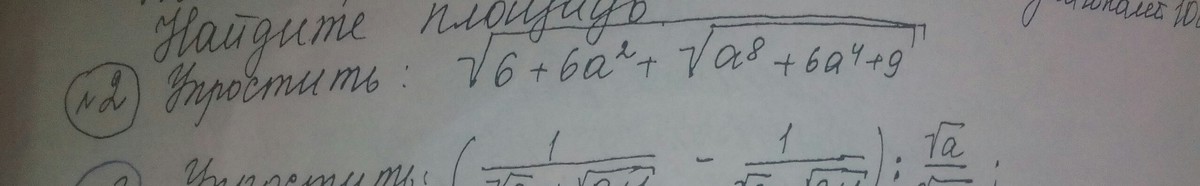 Найдите площадь
№2 Упростить: √(6+6a²+√(a⁸+6a⁴+9))
Упростить: (1 - 1) : √a ;